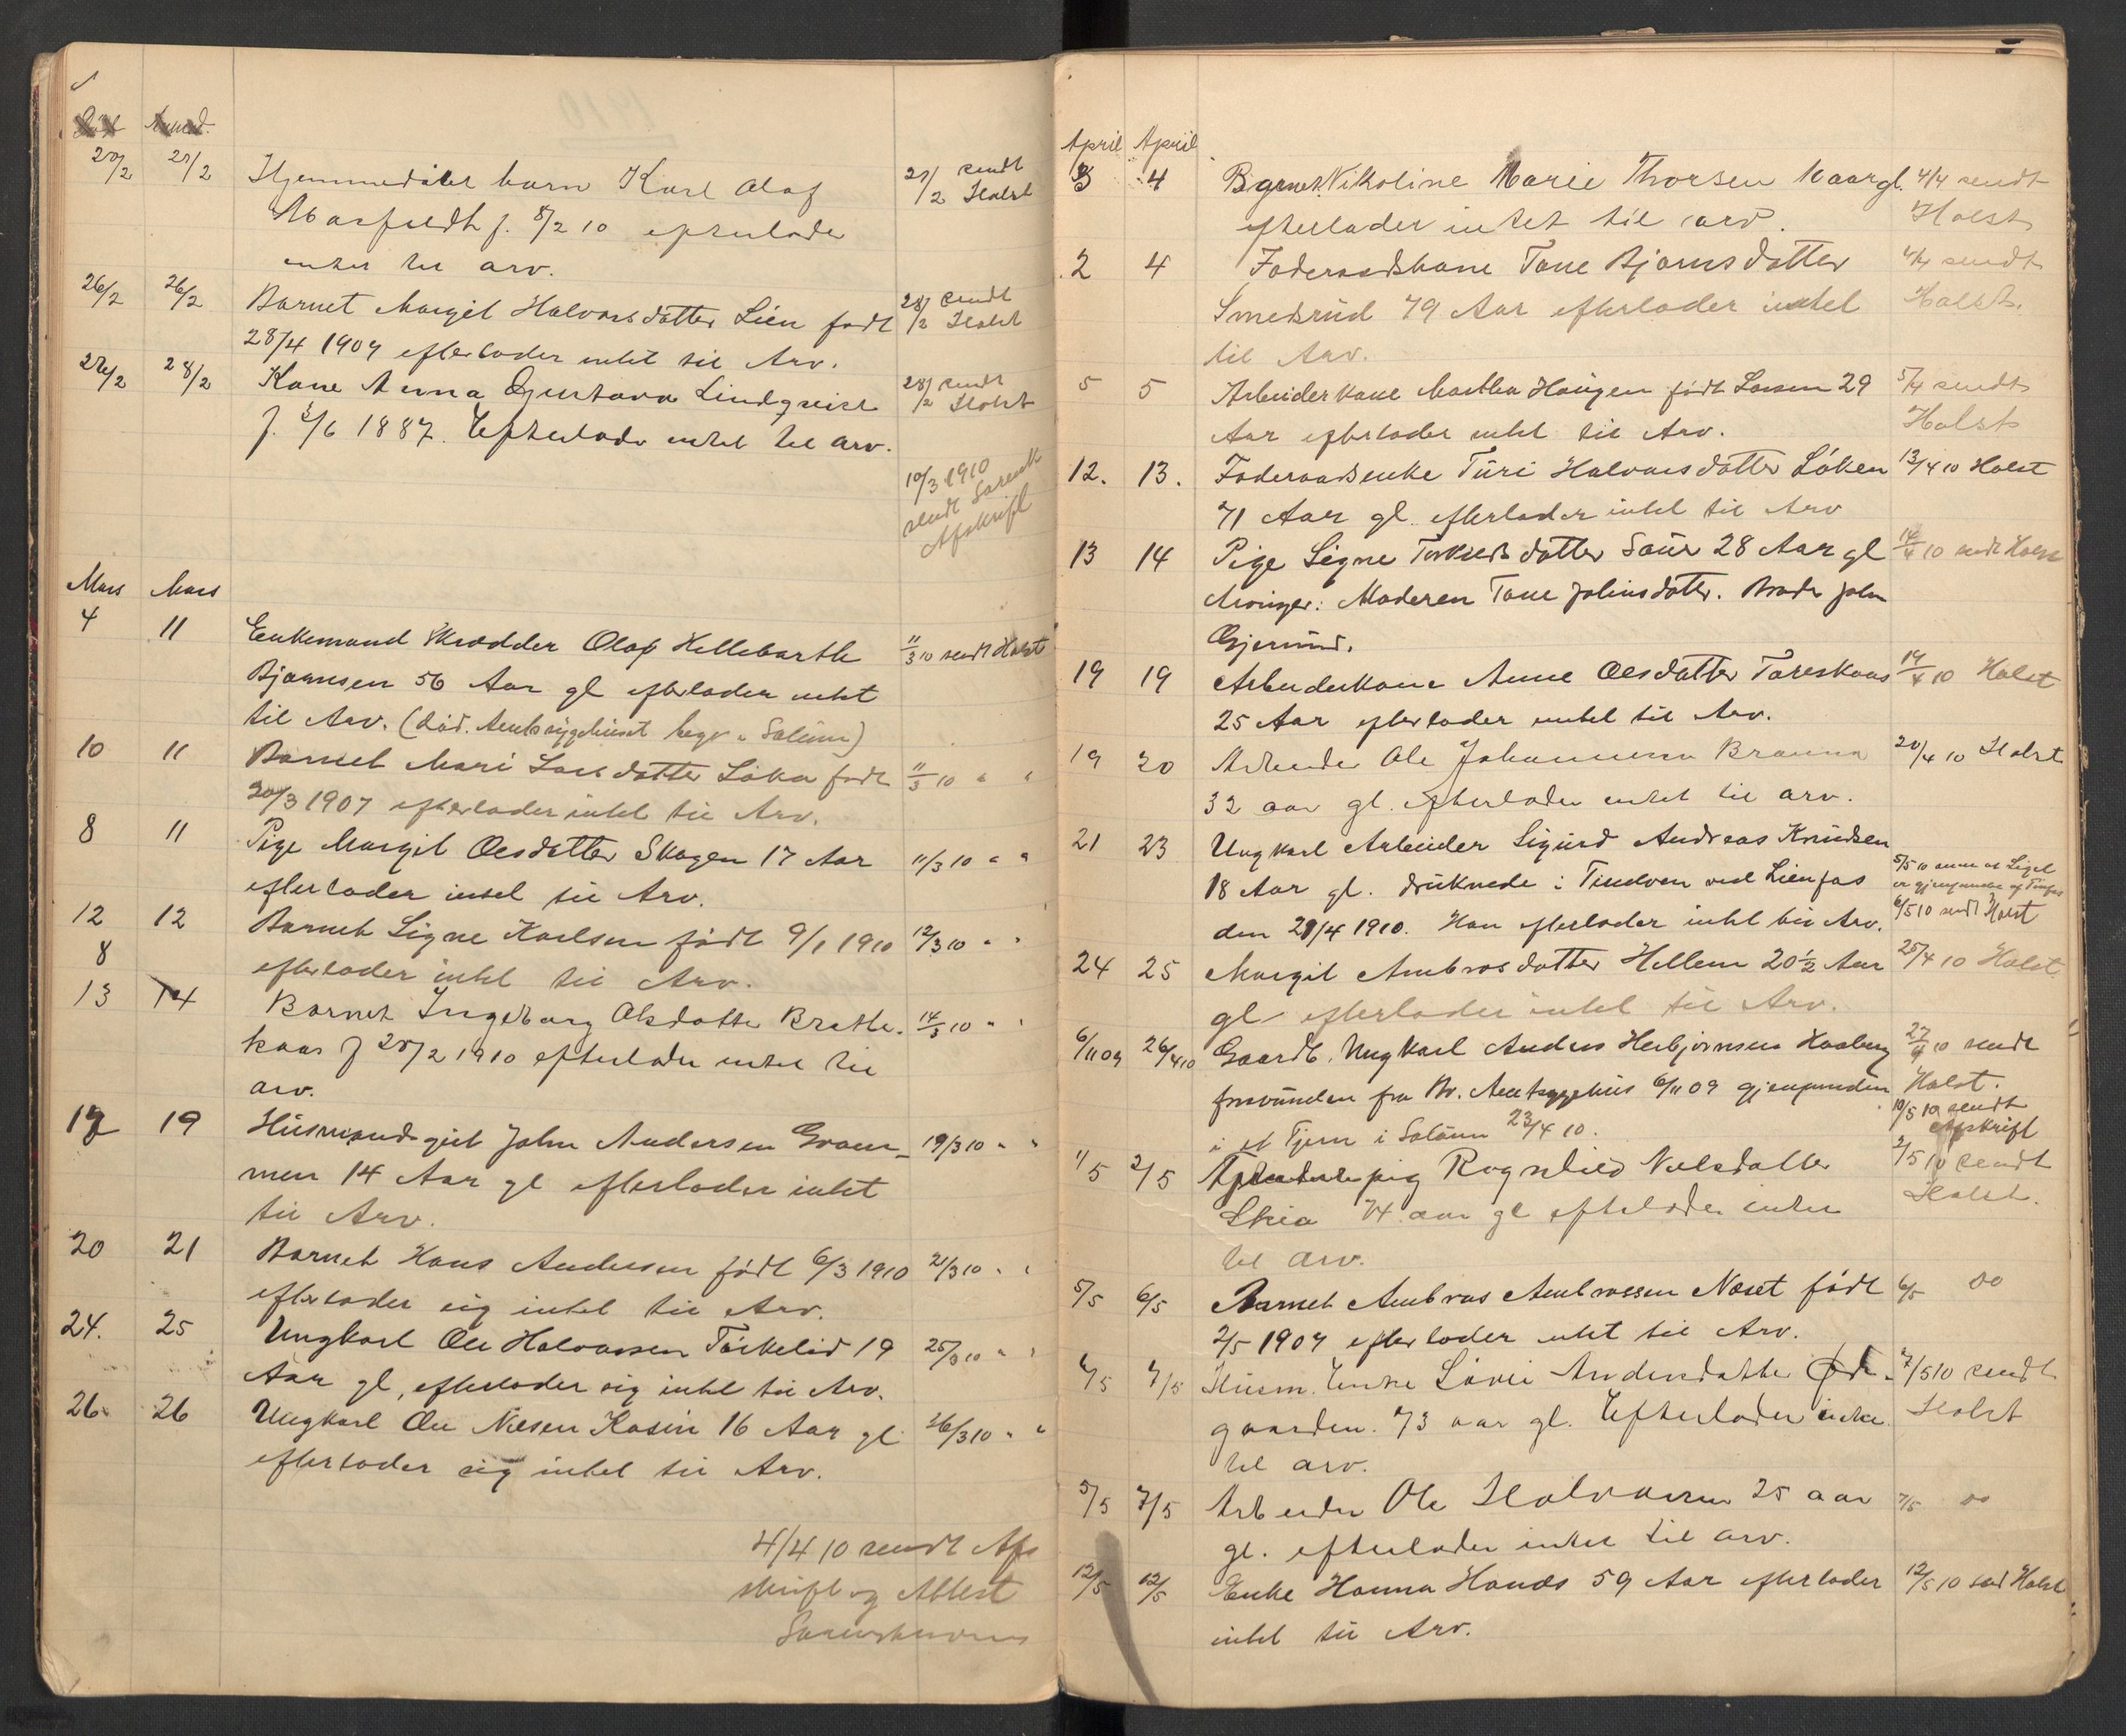 20/2 27/2 Hjemmedøbt barn Karl Olaf
27/2 sendt Holst
f. 8/2 10 efterlader
intet til arv.
26/2 26/2 Barnet Margit Halvorsdatter Lien født
28/2 sendt Holst
28/4 1909 efterlader intet til Arv.
28/2 Kone Anna Gustava Lindqvist
28/2 sendt Holst
f. 1887. Efterlader intet til arv.
10/3 1910
sendt Sorensk
Afskrift
Mars Mars
4 11 Enkemand Skrædder Olaf Hellebarth
11/3 10 sendt Holst
Bjørnsen 56 Aar gl efterlader intet
til Arv. (død. Amtssygehuset begr. Solüm)
10 11 Barnet Mari Larsdatter født
11/3 10 " "
20/3 1907 efterlader intet til Arv.
8 11 Pige Margit Olsdatter Skogen 17 Aar
11/3 10 " "
efterlader intet til Arv.
12 12 Barnet Signe Karlsen født 9/1 1910
12/3 10 " "
8 efterlader intet til Arv.
13 14 Barnet Ingeborg Olsdatter Bratte-
14/3 10 " "
kaas f 28/2 1910 efterlader intet til
arv.
17 19 Hüsmandsgut John Andersen Gram-
19/3 10 " "
men 14 Aar gl efterlader intet
til Arv.
20 21 Barnet Hans Andersen født 6/3 1910
21/3 10 " "
efterlader sig intet til Arv.
24. 25 Ungkarl Ole Halvorsen Törkelid 19
25/3 10 " "
Aar gl, efterlader sig intet til Arv.
26. 26 Ungkarl Ole Nilsen Kasin 16 Aar gl
26/3 10 " "
efterlader sig intet til Arv.
4/4 10 sendt Af-
skrift og Attest
Sorenskriveren
April April
3 4 Barnet Nikoline Marie Thorsen 10 aar gl.
4/4 sendt
efterlader intet til arv.
Holst
2 4 Foderaadskone Tone Bjørnsdatter
4/4 sendt
Smedsrüd 79 Aar efterlader intet
Holst.
til Arv.
5 5 Arbeiderkone Martha Haügen født Larsen 29
5/4 sendt
Aar efterlader intet til Arv.
Holst
12. 13. Foderaadsenke Türi Halvorsdatter Löken
13/4 10 Holst
71 Aar gl. efterlader intet til Arv
13 14 Pige Signe Torkildsdatter Saüer 28 Aar gl
14/4 10 sendt Holst
Arvinger: Moderen Tone Johnsdatter. Broder John
Gjerüd.
19 19 Arbeiderkone Anne Olsdatter Toreskaas
19/4 10 Holst
25 Aar efterlader intet til Arv.
19 20 Arbeider Ole Johannesen
20/4 10 Holst
32 aar gl. efterlader intet til arv.
21 23 Ungkarl Arbeider Sigürd Andreas Knüdsen
18 Aar gl. drüknede i Tindven ved Lienfos
den 21/4 1910. Han efterlader intet til Arv.
6/5 10 sendt Holst
24 25 Margit Ambrosdatter Hellem 20½ Aar
25/4 10 Holst
gl efterlader intet til Arv.
6/11 09 26/4 10 Gaardb. Ungkarl Anders Herbjørnsen Haaberg
27/4 10 sendt
forsvünden fra Br. Amtsygehus 6/11 09 gjenfunden
Holst.
i et Tjern i Solüm 23/4 10.
10/5 10 sendt
Afskrift
1/5 2/5 pig Ragnhild Nilsdatter
2/5 10 sendt
74 aar gl efterlader intet
Holst.
til arv.
5/5 6/5 Barnet Ambros Ambrossen Næset født
6/5 Do
2/5 1909 efterlader intet til Arv.
6/5 7/5 Hüsm. Enke Andersdatter Øde-
7/5 10 sendt
gaarden. 73 aar gl. Efterlader intet
Holst
til arv.
5/5 7/5 Arbeider Ole Halvorsen 25 aar
7/5 Do
gl. efterlader intet til arv.
12/5 12/5 Enke Hanna Hands 59 Aar efterlader
12/5 10 sendt Holst
intet til Arv.